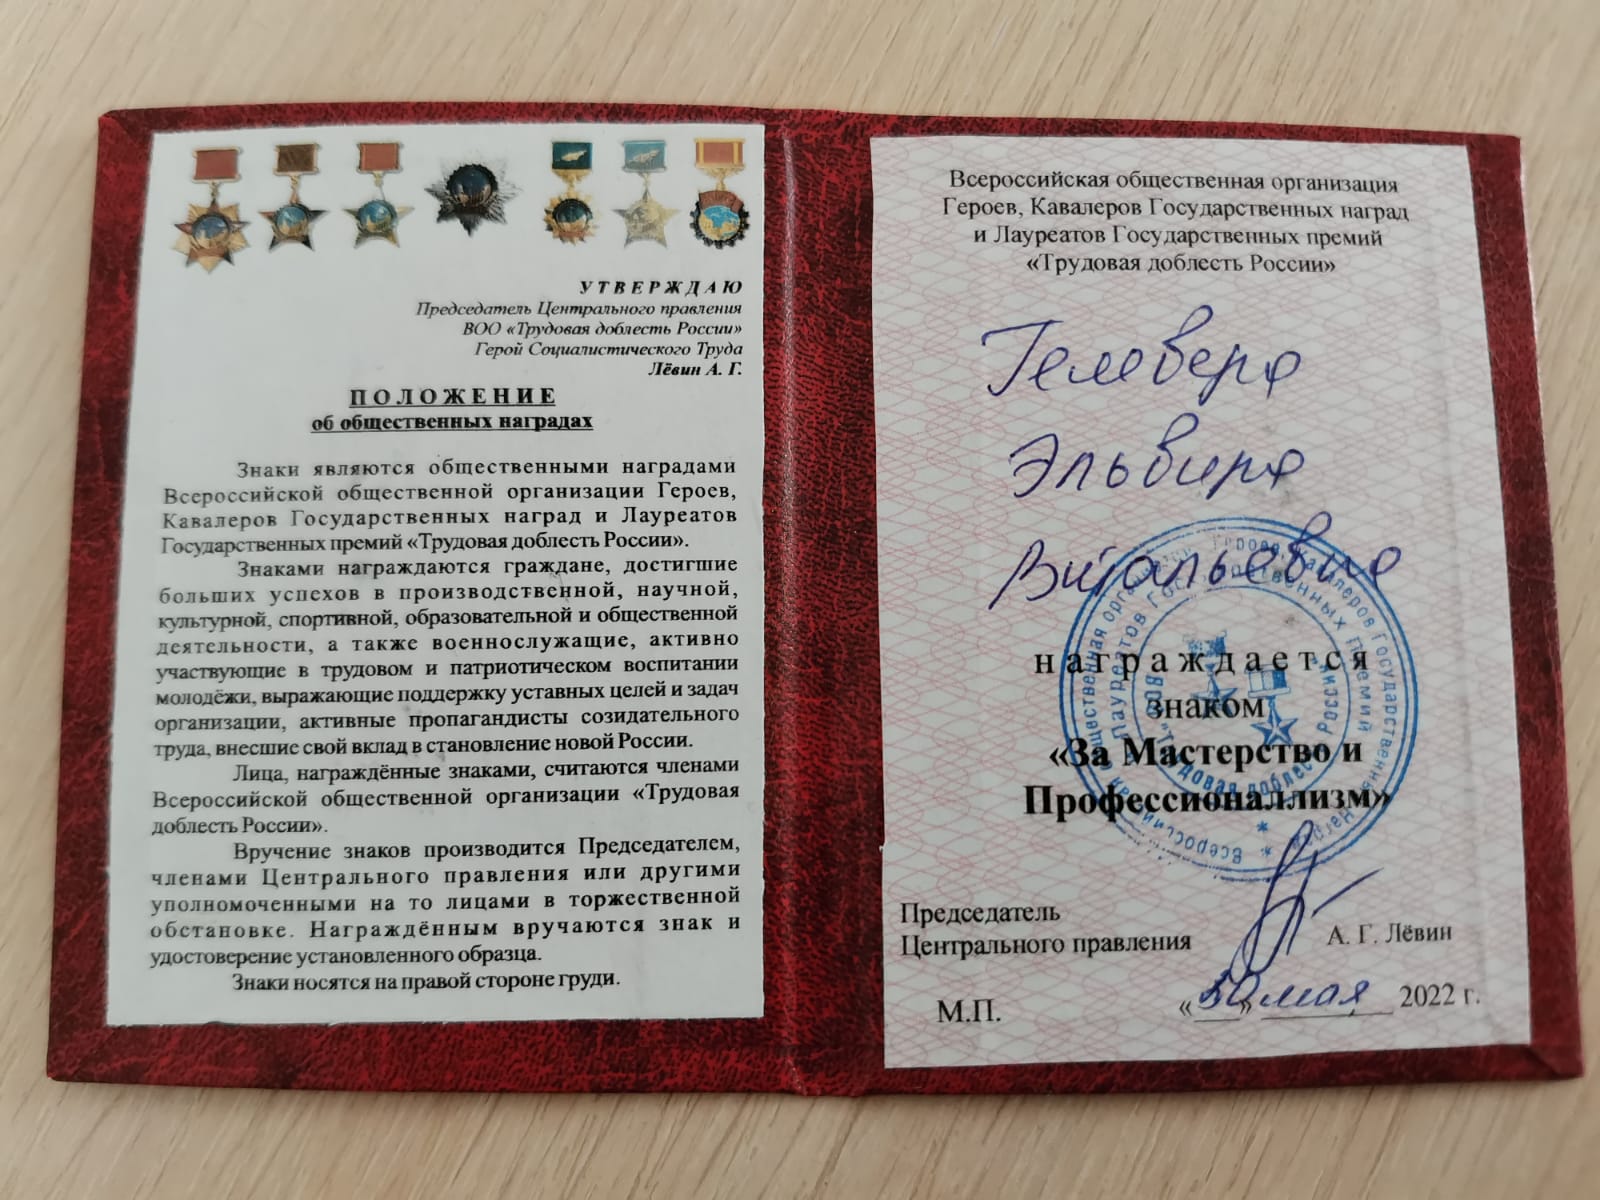 УТВЕРЖДАЮ
Председатель Центрального правления
ВОО «Трудовая доблесть России»
Герой Социалистического Труда
Лёвин А. Г.
ПОЛОЖЕНИЕ
об общественных наградах
Знаки являются общественными наградами
Всероссийской общественной организации Героев,
Кавалеров Государственных наград и Лауреатов
Государственных премий «Трудовая доблесть России».
Знаками награждаются граждане, достигшие
больших успехов в производственной, научной,
культурной, спортивной, образовательной и общественной
деятельности, а также военнослужащие, активно
участвующие в трудовом и патриотическом воспитании
молодёжи, выражающие поддержку уставных целей и задач
организации, активные пропагандисты созидательного
труда, внесшие свой вклад в становление новой России.
Лица, награждённые знаками, считаются членами
Всероссийской общественной организации «Трудовая
доблесть России».
Вручение знаков производится Председателем,
членами Центрального правления или другими
уполномоченными на то лицами в торжественной
обстановке. Награждённым вручаются знак и
удостоверение установленного образца.
Знаки носятся на правой стороне груди.
Всероссийская общественная организация
Героев, Кавалеров Государственных наград
и Лауреатов Государственных премий
«Трудовая доблесть России»
Гелевера
Эльвира
Витальевна
награждается
знаком
«За Мастерство и
Профессионаллизм»
Всероссийская общественная организация Героев, Кавалеров Государственных наград
Лауреатов Государственных премий
"Трудовая доблесть России"
Председатель
Центрального правления
А. Г. Лёвин
М.П.
«30» мая 2022 г.